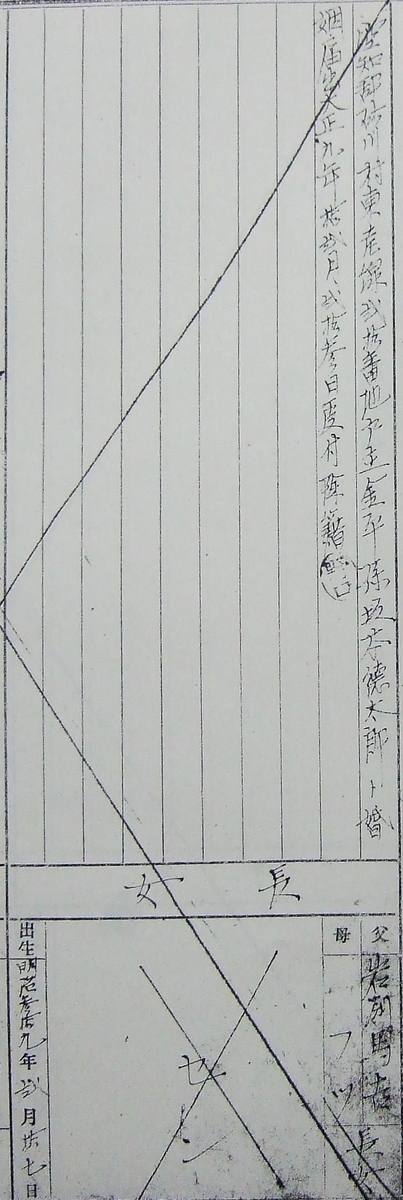 空知郡砂川村東壱線弐拾番地戸主金平孫坂本徳太郎ト婚
姻届出大正九年拾弐月弐拾参日受付除籍
長女
父 岩渕
長女
母 フツ
セン
出生明治参拾九年弐月拾七日